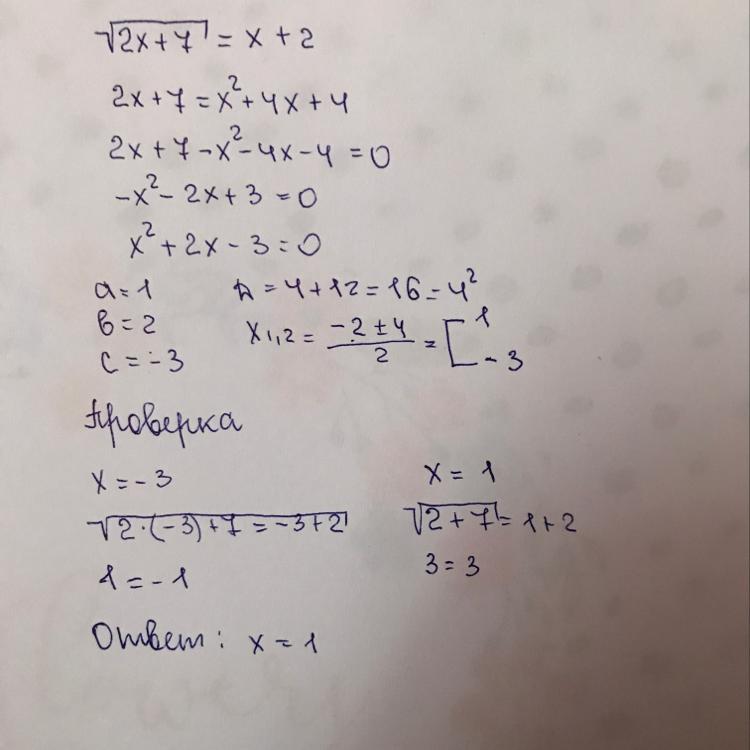 √2x+7 = x+2
2x+7 = x²+4x+4
2x+7-x²-4x-4 = 0
-x²-2x+3=0
x²+2x-3=0
a=1
D=4+12=16=4²
в=2
x₁,₂ = (-2±4)/2 = [ 1 -3
c=-3
Проверка
x=-3
x = 1
√2·(-3)+7 = -3+2
√2+7 = 1+2
1=-1
3=3
Ответ: x=1